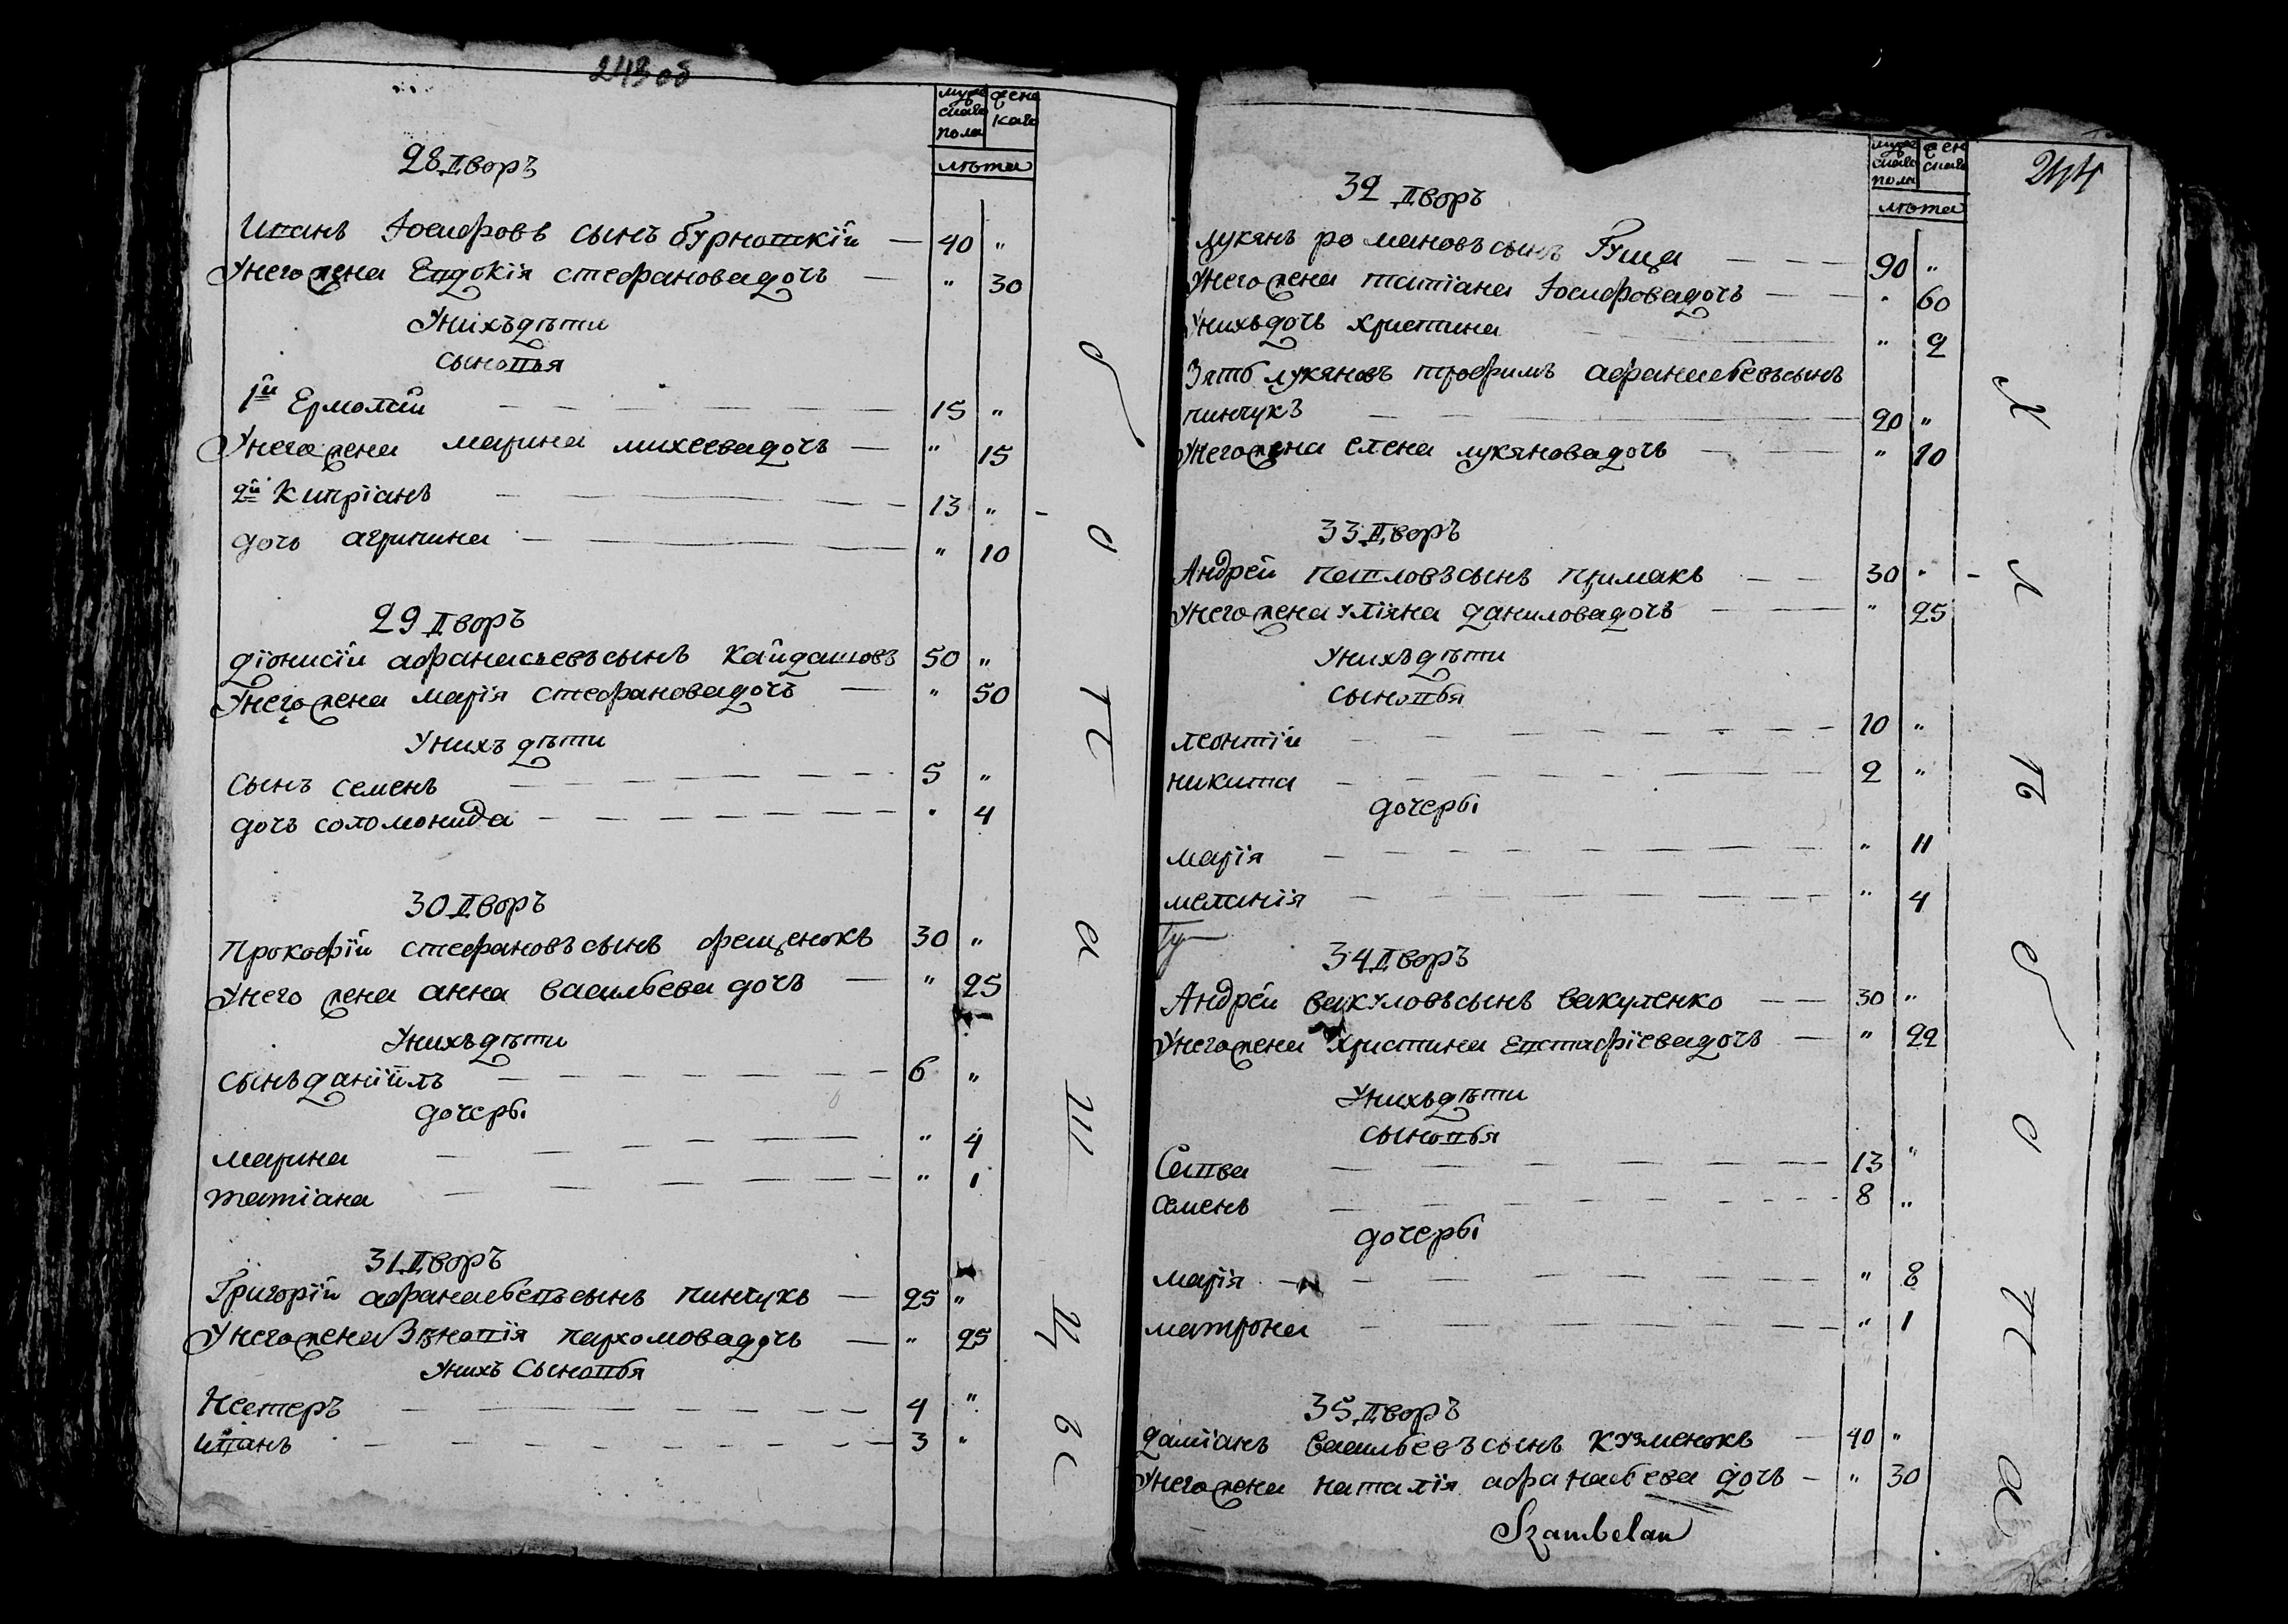 243 об
мужеска пола
женскаго
лѣта
28 дворъ
Иванъ Іосифовъ сынъ бурновскій — 40 "
У него жена Евдокія стефанова дочь — " 30
У нихъ дѣти
сыновья
1й Ермолай — 15 "
У него жена марина михеева дочь — " 15
2й Кипріанъ — 13 "
дочь агрипина — " 10
29 дворъ
діонисій афанасьевъ сынъ Кайдановъ 50 "
У него жена марія стефанова дочь — " 50
У нихъ дѣти
сынъ семенъ — 5 "
дочь соломонида — " 4
30 дворъ
Прокофій стефановъ сынъ фещенокъ 30 "
У него жена анна васильева дочь — " 25
У нихъ дѣти
сынъ даніилъ — 6 "
дочеры
марина — " 4
татіана — " 1
31 дворъ
Григорій афанасьевъ сынъ пинчукъ — 25 "
У него жена Зѣновія пархомова дочь — " 25
У нихъ Сыновья
Нестеръ — 4 "
Иванъ — 3 "
244
мужеска пола
женска
лѣта
32 дворъ
лукянъ романовъ сынъ — 90 "
У него жена татіана Іосифова дочь — " 60
У нихъ дочь христина — " 2
Зять лукяновъ трофимъ афанасьевъ сынъ
пинчукъ — 20 "
У него жена елена лукянова дочь — " 20
33 дворъ
Андрей павловъ сынъ примакъ — 30 "
У него жена уліяна данилова дочь — " 25
У нихъ дѣти
сыновья
леонтій — 10 "
никита — 2 "
дочеры
марія — " 11
меланія — " 4
34 дворъ
Андрей вакуловъ сынъ вакуленко — 30 "
У него жена христина Евстафіева дочь — " 22
У нихъ дѣти
сыновья
Савва — 13 "
семенъ — 8 "
дочеры
марія — " 8
матрона — " 1
35 дворъ
даміанъ васильевъ сынъ кузменокъ — 40 "
У него жена наталія афанасьева дочь — " 30
Szambelan